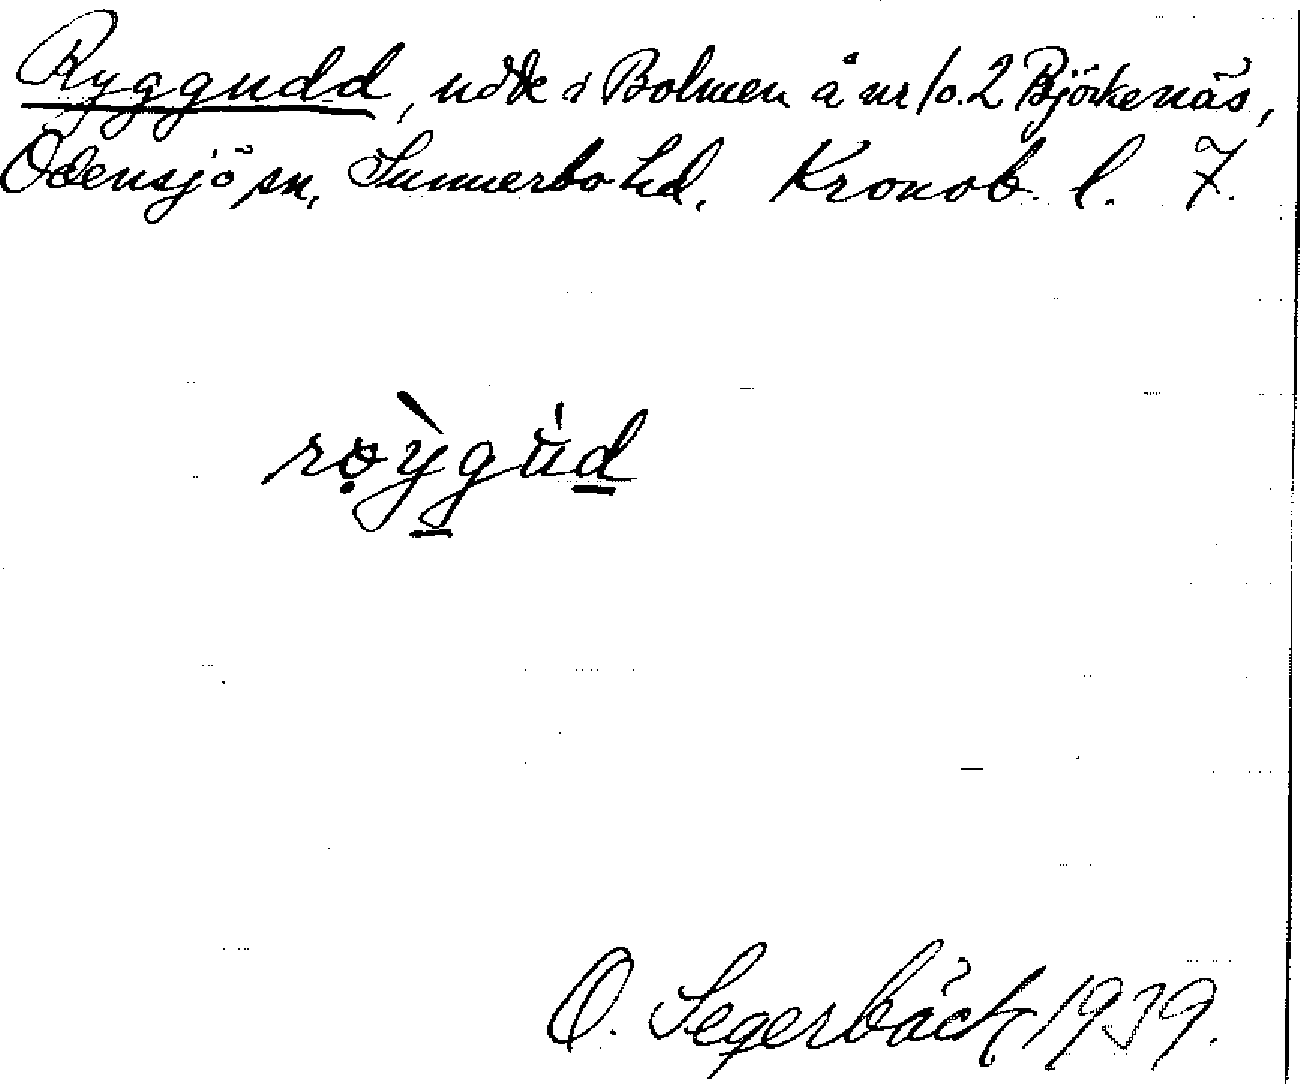 Ryggudd, udde i Bolmen å nr/o. 2 Björkenäs,
Odensjö sn, Sunnerbo hd. Kronob. l. 7.
røỳgúd
O. Segerbäck 1939.